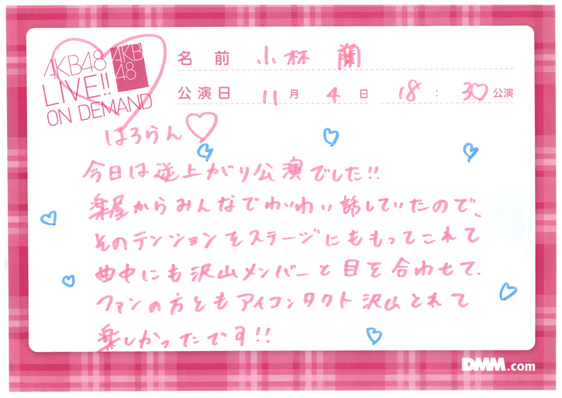 AKB48
LIVE!!
ON DEMAND
AKB
48
名前 小林 蘭
公演日 11月 4日 18:30公演
はろらん♡
今日は逆上がり公演でした!!
楽屋からみんなでわいわい話していたので、
そのテンションをステージにももってこれて
曲中にも沢山メンバーと目を合わせて、
ファンの方ともアイコンタクト沢山とれて
楽しかったです!!
DMM.com